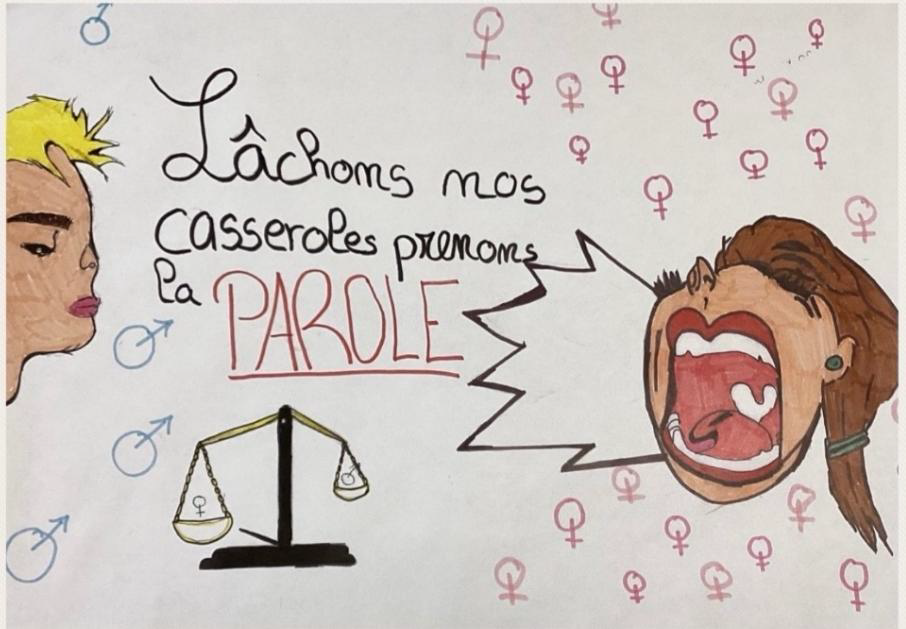 Lâchons nos
casseroles prenons
la PAROLE